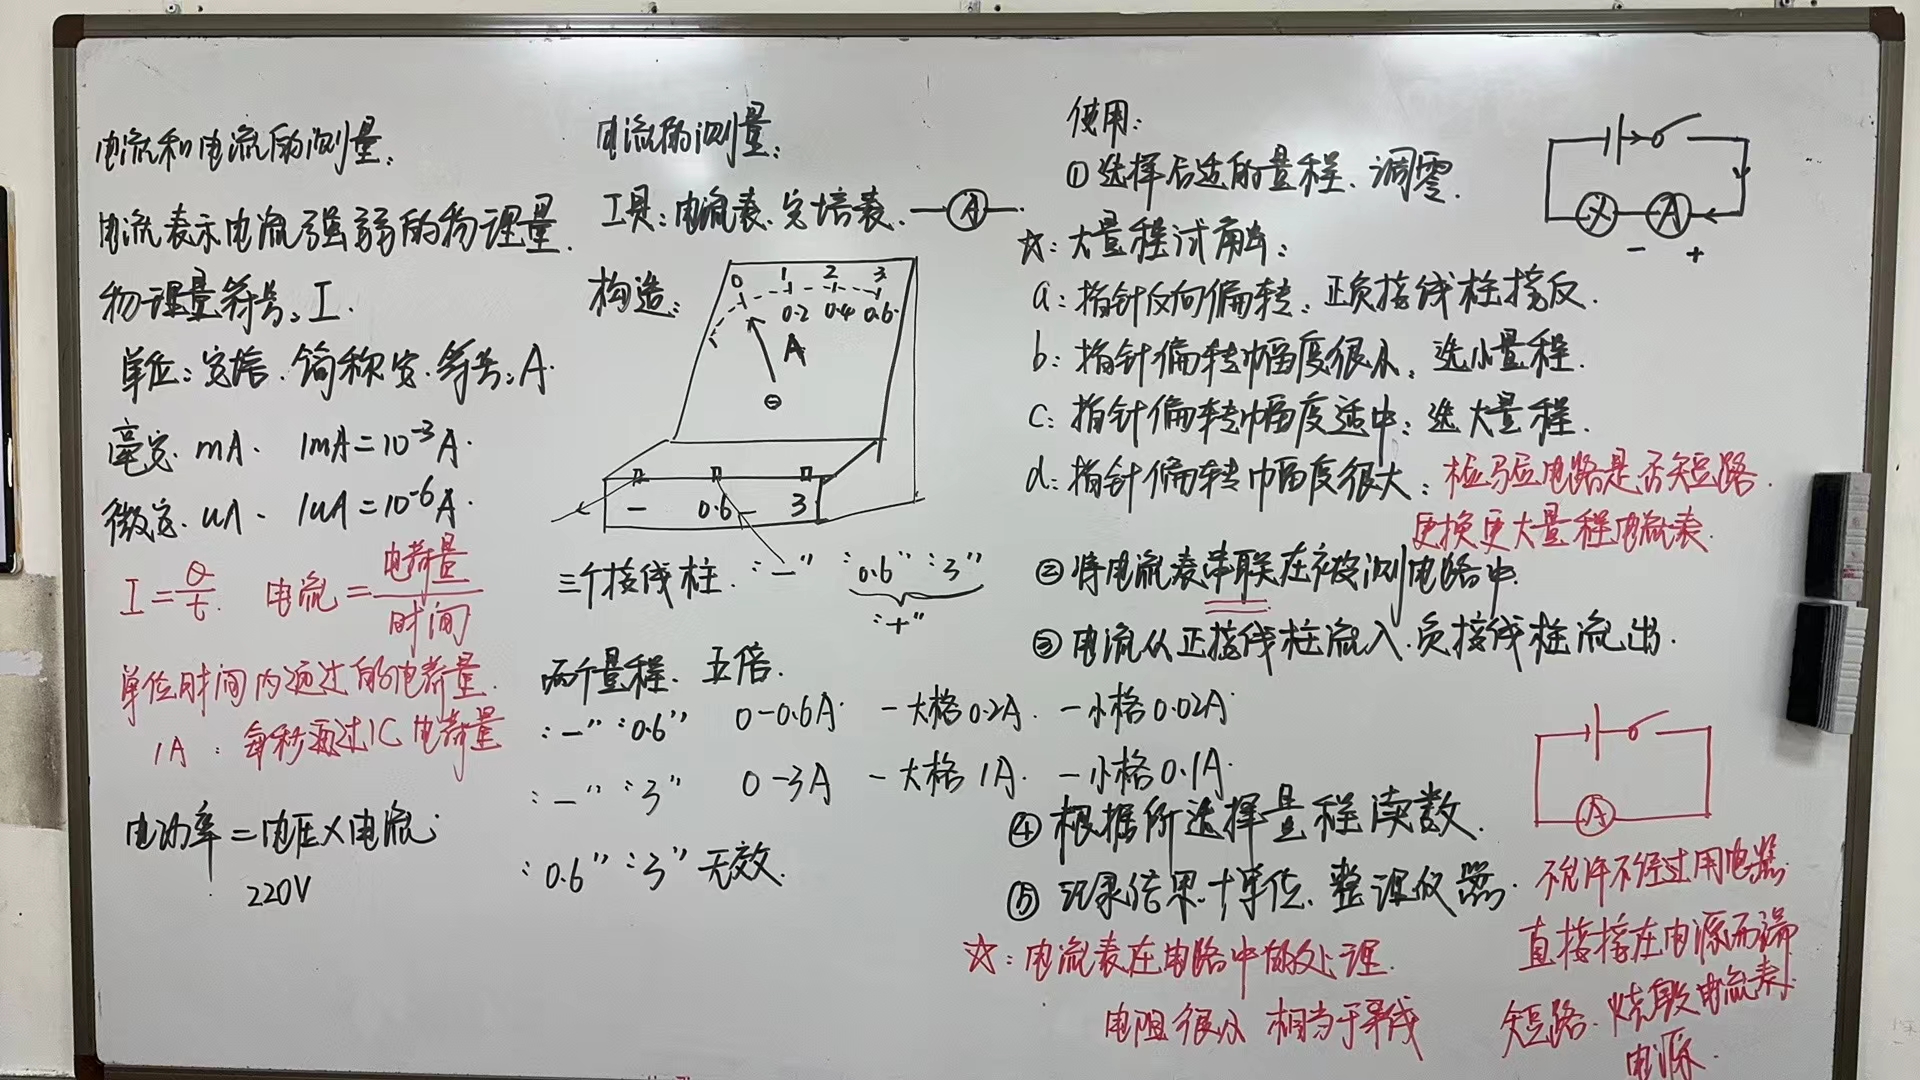 电流和电流的测量：
电流表示电流强弱的物理量.
物理量符号：I.
单位：安培.简称安.符号：A.
毫安. mA. 1mA=10⁻³A.
微安. uA. 1uA=10⁻⁶A.
I=Q/t. 电流=电荷量/时间
单位时间内通过的电荷量.
1A：每秒通过1C电荷量
电功率=电压×电流
220V
电流的测量：
工具：电流表、安培表. A
构造：
0 1 2 3
0.2 0.4 0.6
A
- 0.6 3
三个接线柱. “-” “0.6” “3”
“+”
两个量程. 五倍.
“-” “0.6” 0-0.6A. 一大格0.2A. 一小格0.02A.
“-” “3” 0-3A 一大格1A. 一小格0.1A.
“0.6” “3” 无效.
使用：
①选择合适的量程、调零.
☆：大量程试触：
a：指针反向偏转：正负接线柱接反.
b：指针偏转幅度很小：选小量程.
c：指针偏转幅度适中：选大量程.
d：指针偏转幅度很大：检验电路是否短路.
更换更大量程电流表.
②将电流表串联在被测电路中.
③电流从正接线柱流入.负接线柱流出.
④根据所选择量程读数.
⑤记录结果+单位、整理仪器.
☆：电流表在电路中的处理.
电阻很小 相当于导线
A
- +
A
不允许不经过用电器
直接接在电源两端
短路.烧毁电流表.
电源.